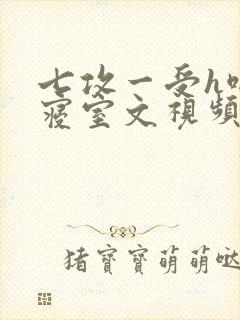 七攻一受h
寝室文視頻
猪寶寶萌萌噠